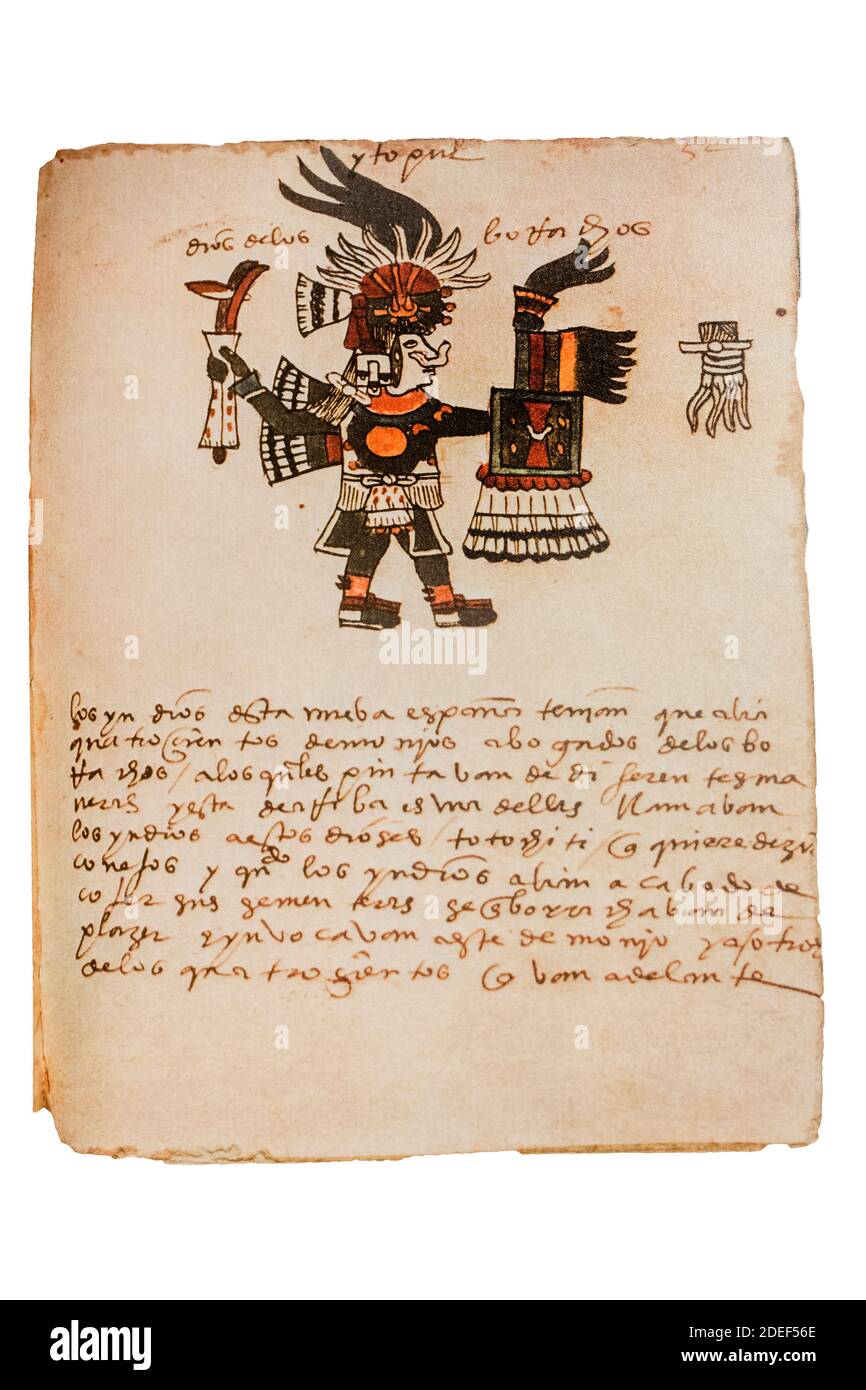 dios de los borrachos
los yndios desta nueba españa tenian que abia
quatroçientos demonjos abogados de los bo
rrachos / a los quales pintavan de diferentes ma
neras y esta de arriba es una dellas llamavan
los yndios a estos dioses / totochiti / q quiere dezir
conejos y quando los yndios abian acabado de
cojer sus sementeras se enborrachavan de
plazer y ynvocavan a este demonjo y a otros
de los quatroçientos q van adelante
alamy
Image ID: 2DEF56E
www.alamy.com